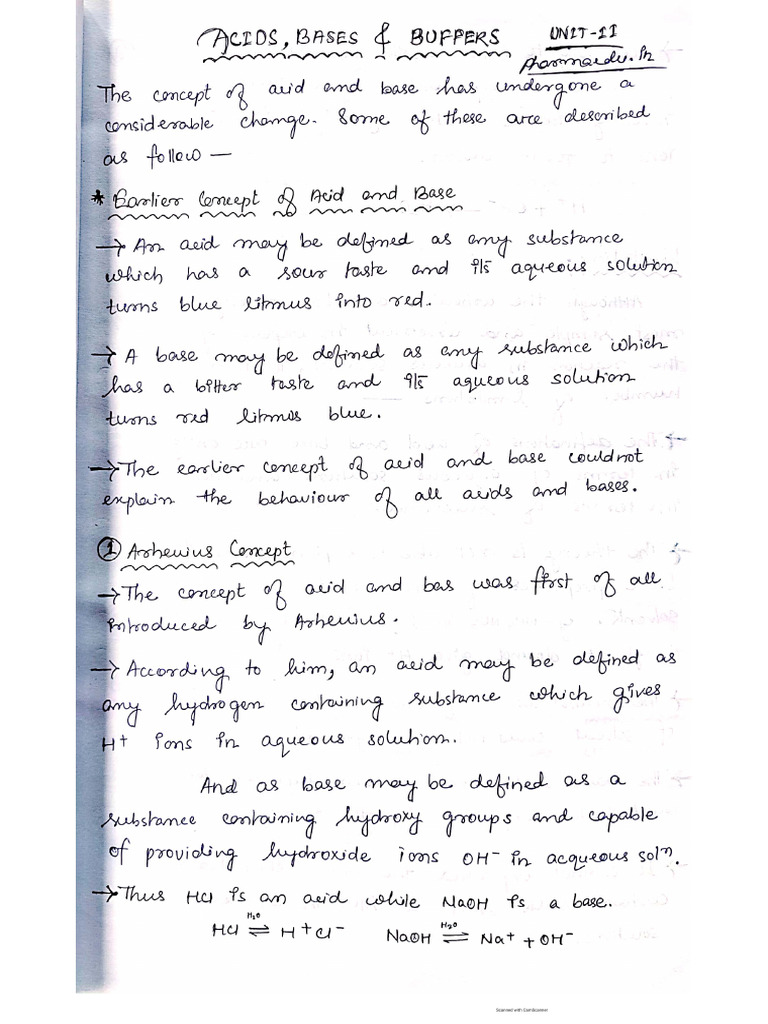 ACIDS, BASES & BUFFERS UNIT-II
Pharmaedu.in
The concept of acid and base has undergone a
considerable change. Some of these are described
as follow —
* Earlier Concept of Acid and Base
→ An acid may be defined as any substance
which has a sour taste and its aqueous solution
turns blue litmus into red.
→ A base may be defined as any substance which
has a bitter taste and its aqueous solution
turns red litmus blue.
→ The earlier concept of acid and base couldnot
explain the behaviour of all acids and bases.
① Arhenius Concept
→ The concept of acid and bas was first of all
introduced by Arhenius.
→ According to him, an acid may be defined as
any hydrogen containing substance which gives
H⁺ ions in aqueous solution.
And as base may be defined as a
substance containing hydroxy groups and capable
of providing hydroxide ions OH⁻ in acqueous solⁿ.
→ Thus HCl is an acid while NaOH is a base.
HCl ⇌ (H₂O) H⁺Cl⁻ NaOH ⇌ (H₂O) Na⁺ + OH⁻
Scanned with CamScanner